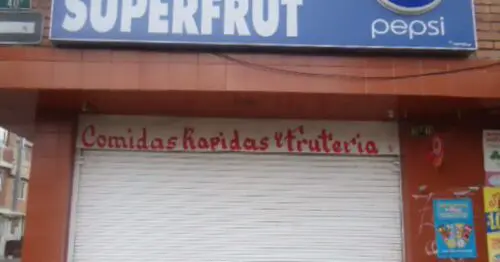 SUPERFRUT
pepsi
Comidas Rapidas Y Fruteria